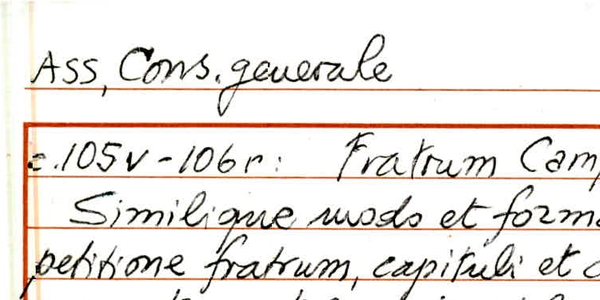 Ass, Cons. generale
c. 105v - 106r: Fratrum Cam
Similique modo et forma
petitione fratrum, capituli et c